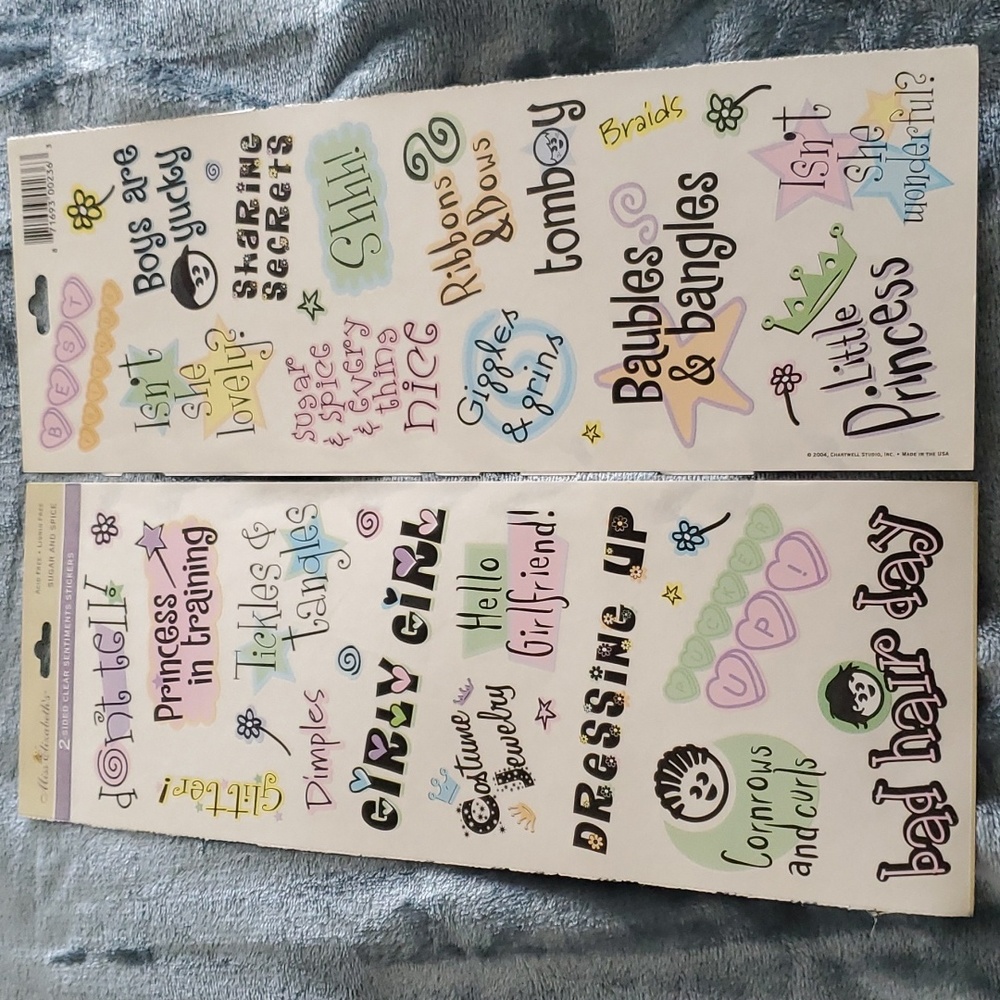 Miss Elizabeth's
ACID FREE • LIGNIN FREE
SUGAR AND SPICE
2 SIDED CLEAR SENTIMENTS STICKERS
don't tell!
Princess
in training
glitter!
Tickles &
tangles
Dimples
GiRLY GiRL
Costume
Jewelry
Hello
Girlfriend!
DRessiNg UP
UP!
Cornrows
and curls
bad hair day
8 71693 00236 3
BEST
Boys are
yucky
Isn't
she
lovely?
SHaRiNg
SeCReTS
sugar
& spice
& every
thing
nice
Shhh!
Giggles
& grins
Ribbons
& Bows
tomboy
Baubles
& bangles
Braids
Little
Princess
Isn't
she
wonderful?
© 2004, CHARTWELL STUDIO, INC. • MADE IN THE USA